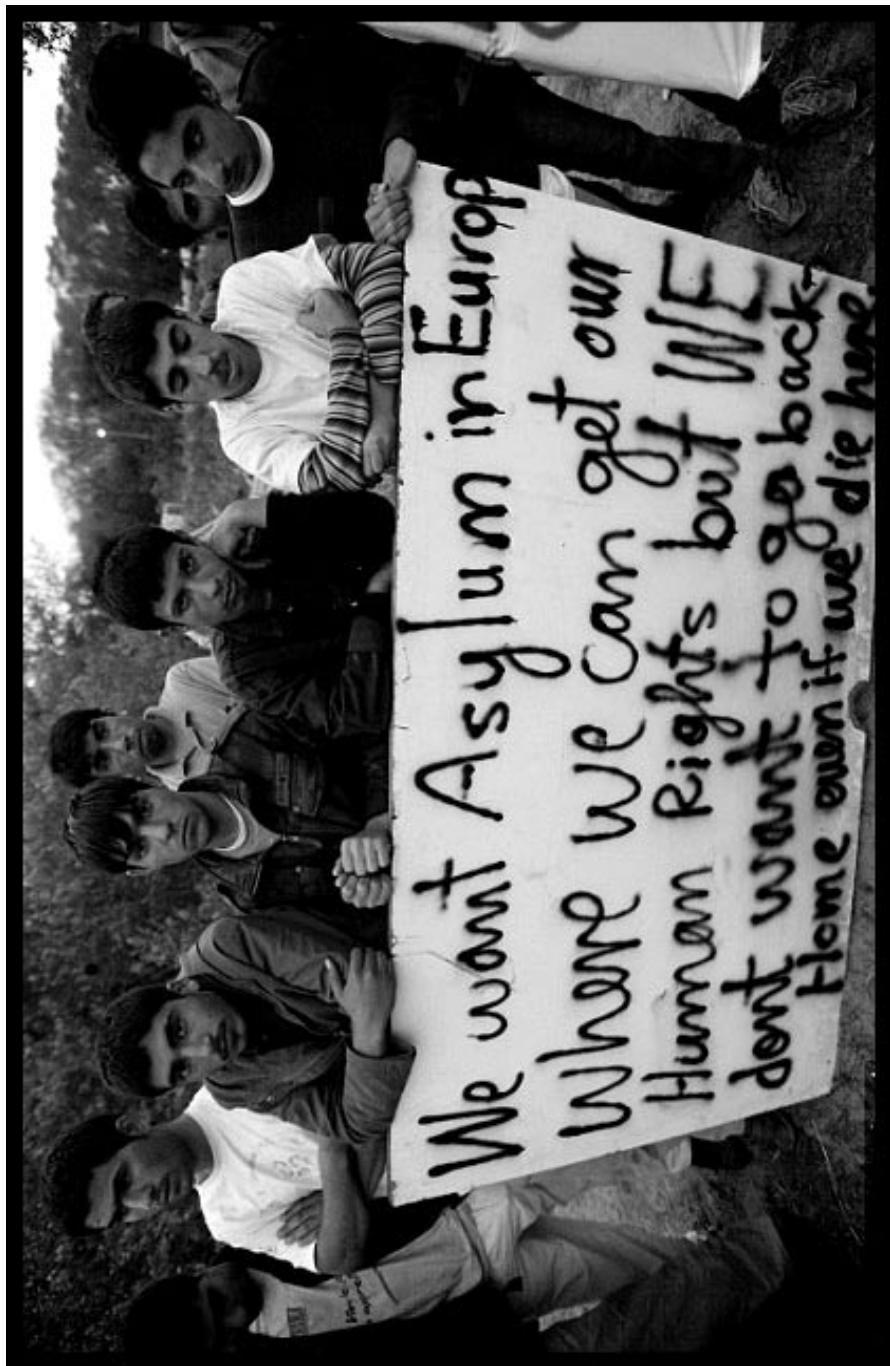 We want Asylum in Europ
Where We can get our
Human Rights but WE
dont want to go back
Home even if we die here.